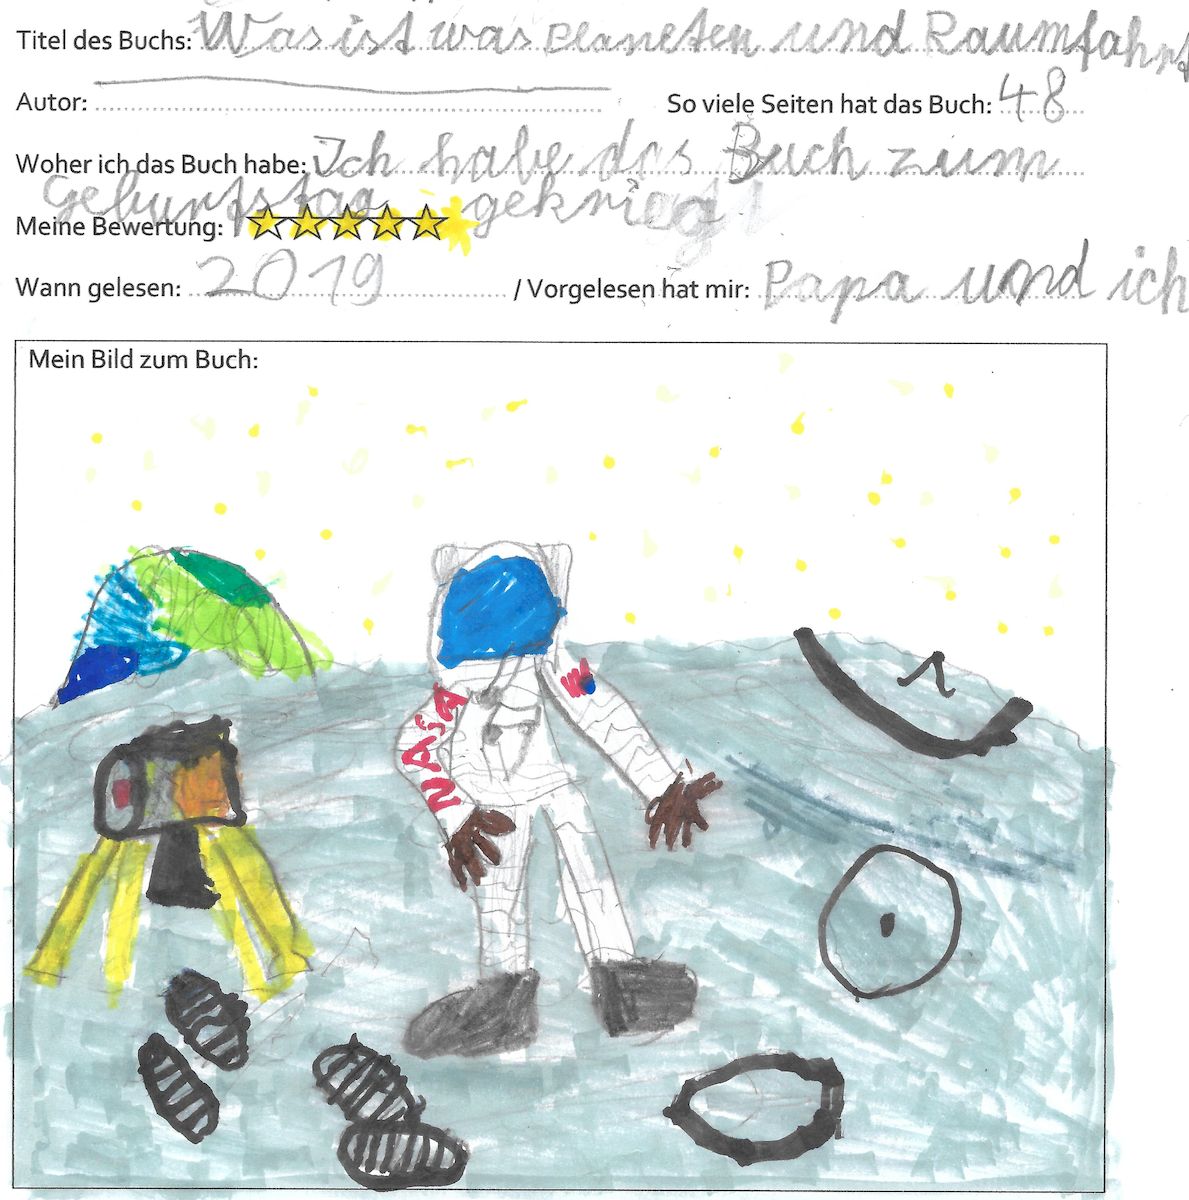 Titel des Buchs: Was ist was Planeten und Raumfahrt
Autor: So viele Seiten hat das Buch: 48
Woher ich das Buch habe: Ich habe das Buch zum
Geburtstag gekriegt
Meine Bewertung:
Wann gelesen: 2019 / Vorgelesen hat mir: Papa und ich
Mein Bild zum Buch:
NASA